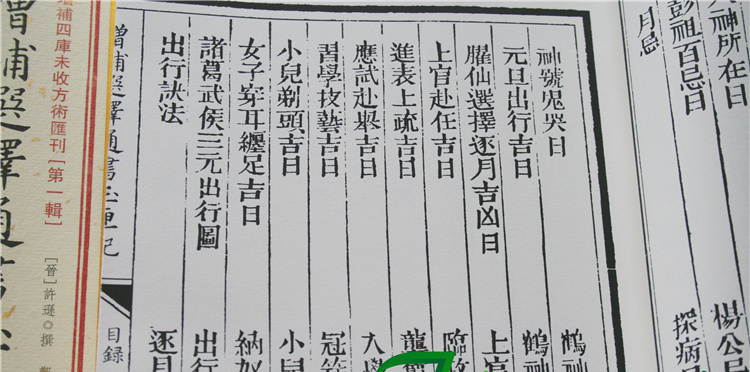 神所在日
楊公忌
彭祖百忌日
探病
月忌
神號鬼哭日
鶴神
元旦出行吉日
鶴神
臞仙選擇逐月吉凶日
上官
上官赴任吉日
臨
進表上疏吉日
龍
應試赴舉吉日
入學
習學技藝吉日
冠笄
小兒剃頭吉日
小兒
女子穿耳纏足吉日
納奴
諸葛武侯三元出行圖
出行
出行訣法
逐月
增補選擇通書玉匣記
目錄
增補四庫未收方術匯刊[第一輯]
[晉]許遜◎撰
增補選擇通書玉